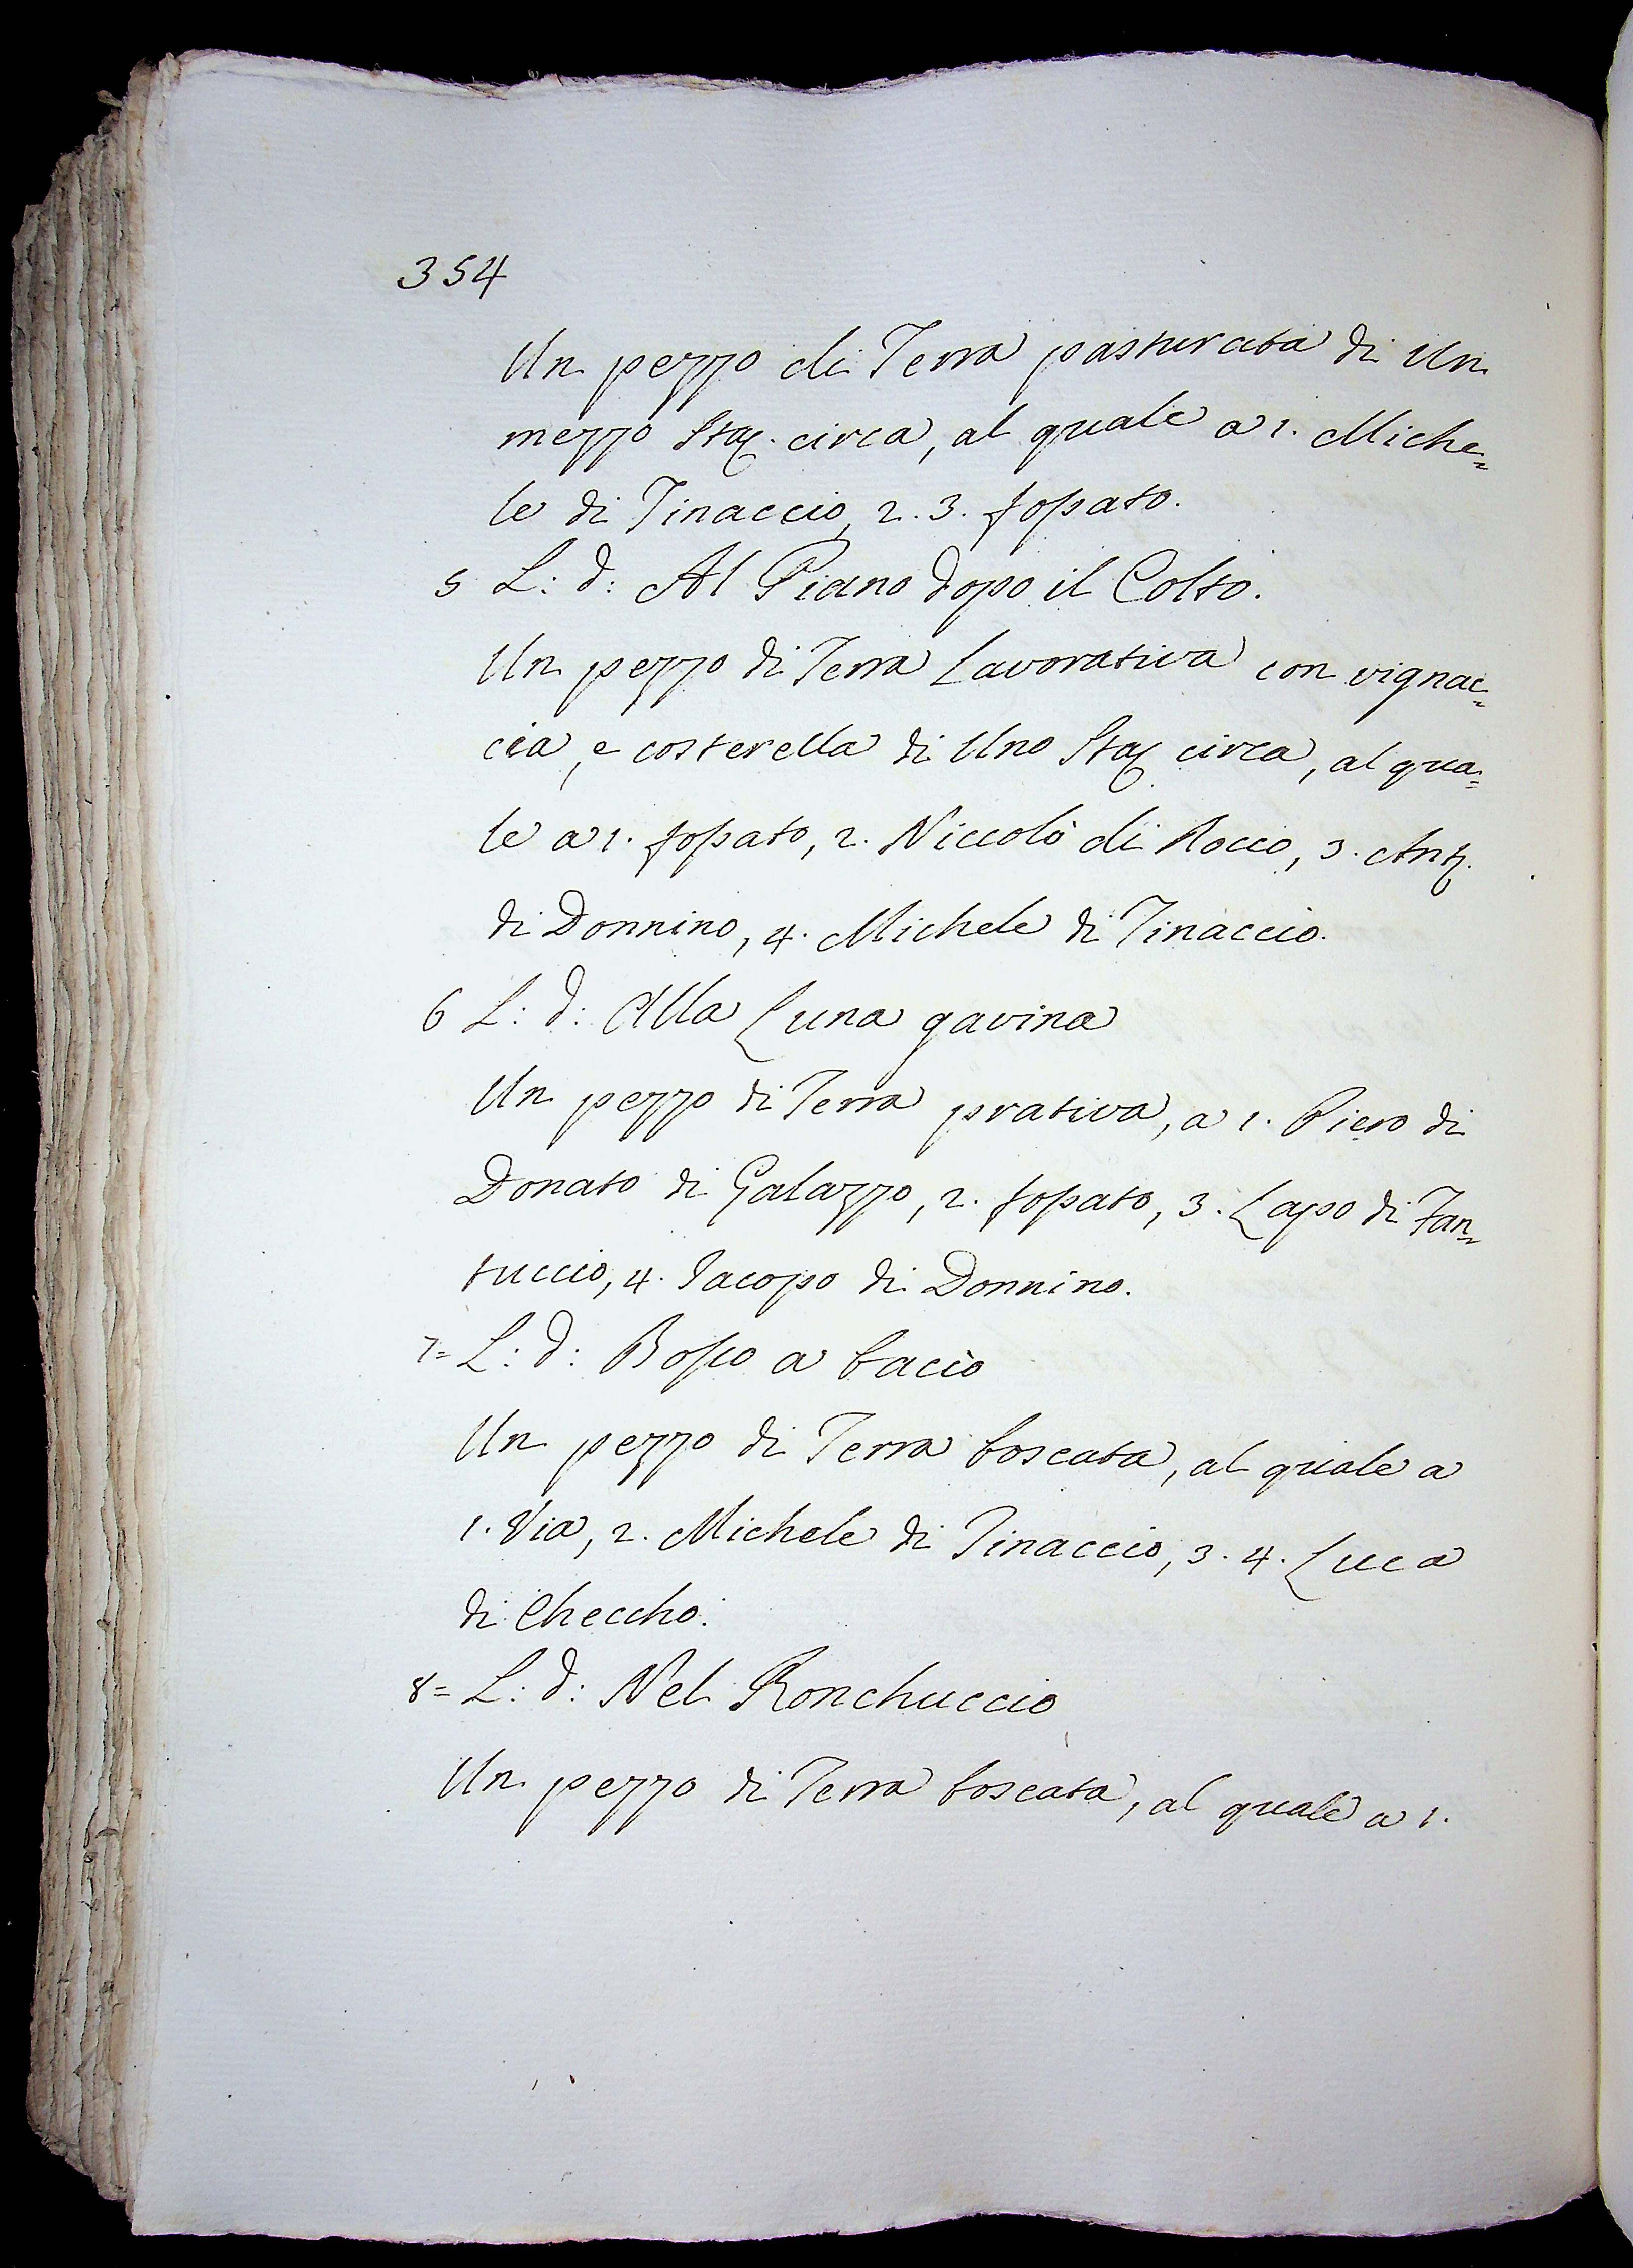 354
Un pezzo di Terra pasturata di Un
mezzo Staj. circa, al quale a 1. Miche=
le di Tinaccio, 2. 3. fossato.
5 L: d: Al Piano dopo il Colto.
Un pezzo di Terra Lavorativa con vignac=
cia, e costerella di Uno Staj. circa, al qua=
le a 1. fossato, 2. Niccolò di Rocco, 3. Ant.
di Donnino, 4. Michele di Tinaccio.
6 L: d: Alla Luna gavina
Un pezzo di Terra prativa, a 1. Piero di
Donato di Galazzo, 2. fossato, 3. Lapo di Fan=
tuccio, 4. Iacopo di Donnino.
7= L: d: Bosco a bacìo
Un pezzo di Terra boscata, al quale a
1. Via, 2. Michele di Tinaccio, 3. 4. Luca
di Checcho.
8= L: d: Nel Ronchuccio
Un pezzo di Terra boscata, al quale a 1.